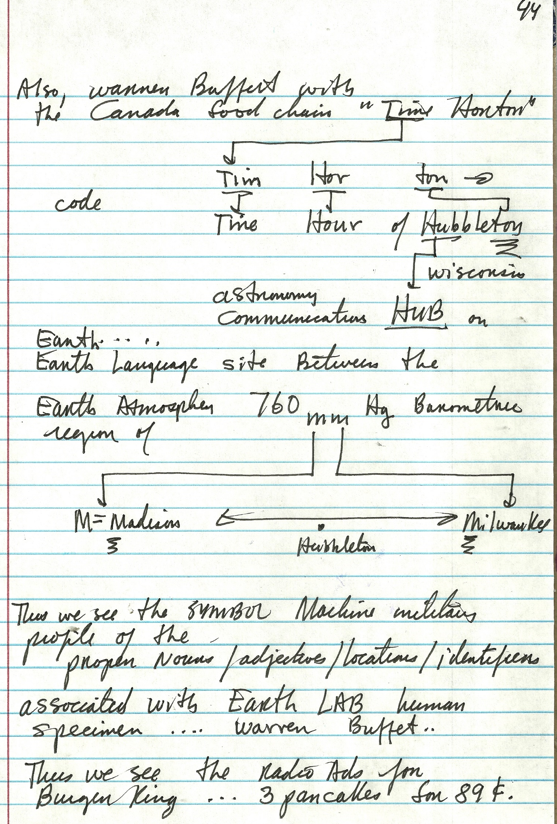 44
Also, warren Buffert with
the Canada food chain "Time Horton"
Tim Hor ton
code
Time Hour of Hubbleton
Wisconsin
astronomy
Communications HUB on
Earth.....
Earth Language site Between the
Earth Atmosphere 760 mm Hg Barometric
region of
M= Madison Milwaukee
Hubbleton
Thus we see the SYMBOL Machine military
profile of the
proper Nouns/adjectives/locations/identifiers
associated with Earth LAB human
specimen .... Warren Buffet..
Thus we see the Radio Ads for
Burger King ... 3 pancakes for 89 ¢.